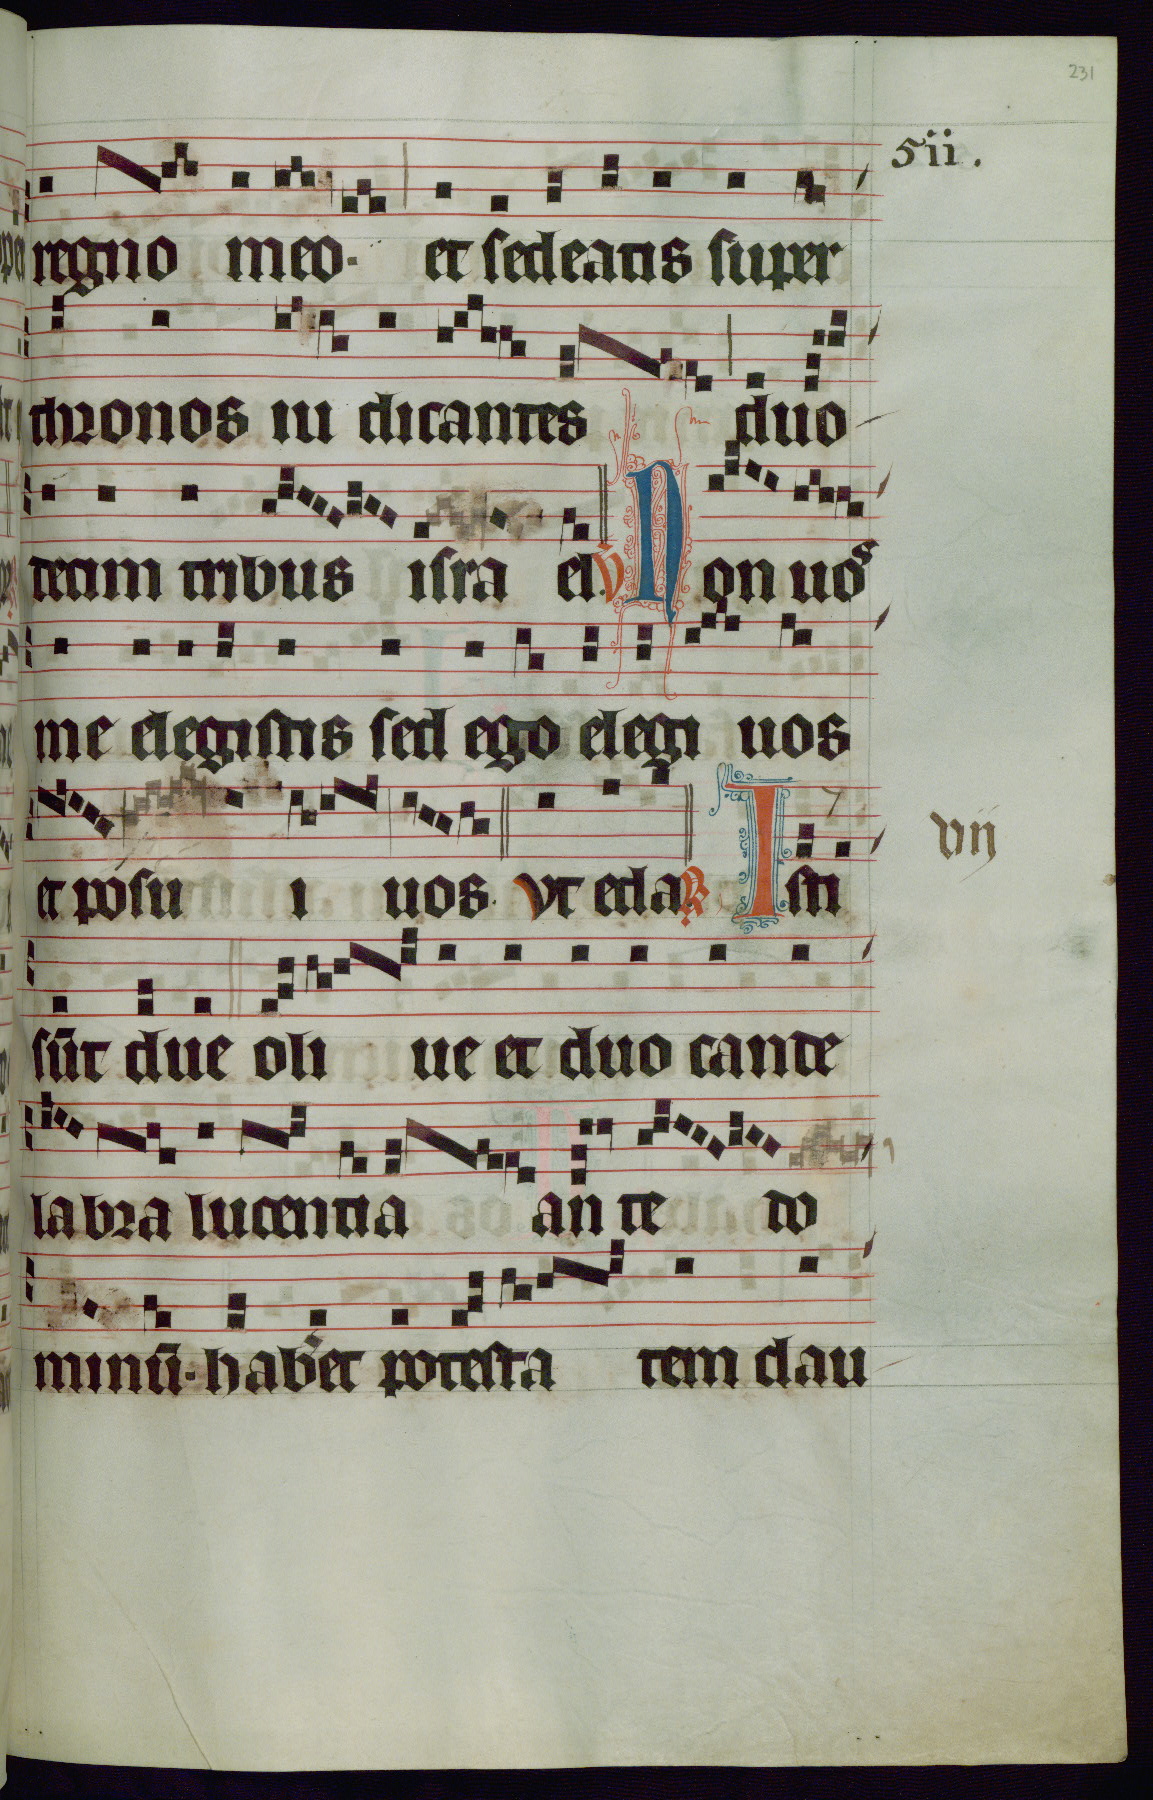 231
5ii.
regno meo· et sedeatis super
thronos iu dicantes duo
tecim tribus isra el. V Non uos
me elegistis sed ego elegi uos
et posu i uos. Vt eda. R Isti
vij
sūt due oli ue et duo cande
labra lucentia an te do
minū· habēt potesta tem clau